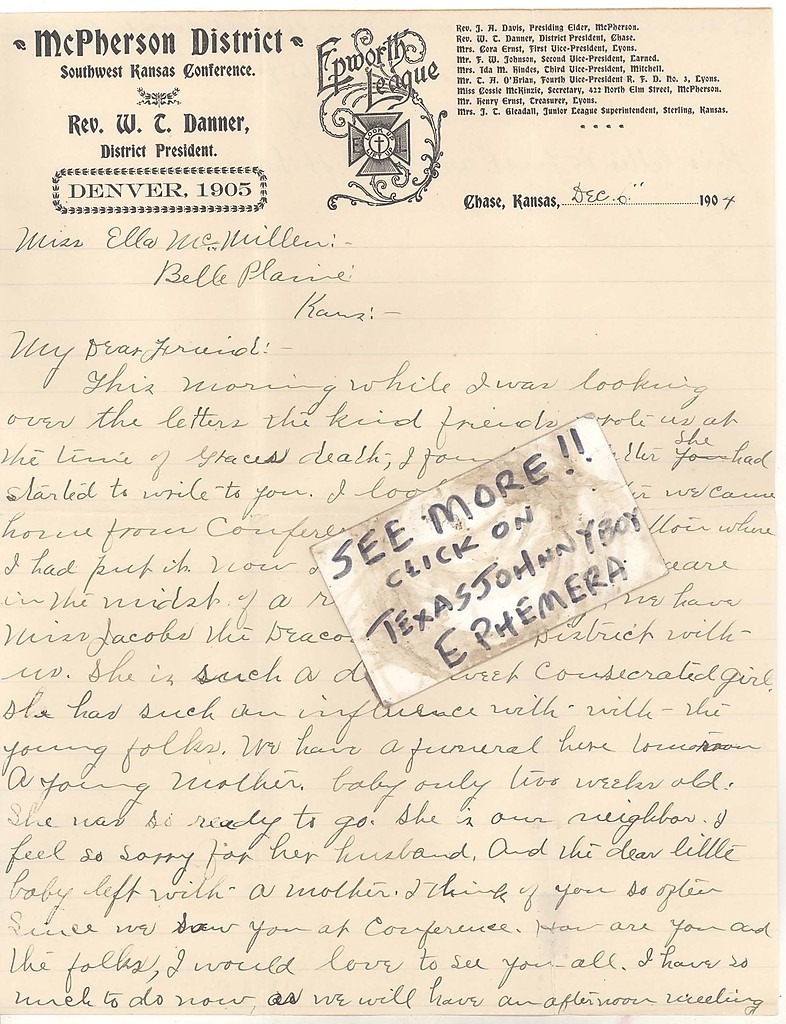 McPherson District
Southwest Kansas Conference.
Rev. W. T. Danner,
District President.
DENVER, 1905
Epworth League
LOOK UP LIFT UP
E L
Rev. J. A. Davis, Presiding Elder, McPherson.
Rev. W. T. Danner, District President, Chase.
Mrs. Cora Ernst, First Vice-President, Lyons.
Mr. F. W. Johnson, Second Vice-President, Larned.
Mrs. Ida M. Hindes, Third Vice-President, Mitchell.
Mr. T. A. O'Brian, Fourth Vice-President R. F. D. No. 3, Lyons.
Miss Cossie McKinzie, Secretary, 422 North Elm Street, McPherson.
Mr. Henry Ernst, Treasurer, Lyons.
Mrs. J. T. Gleadall, Junior League Superintendent, Sterling, Kansas.
Chase, Kansas, Dec. 6" 1904
Miss Ella McMillen:-
Belle Plaine
Kans:-
My Dear Friend:-
This morning while I was looking
over the letters the kind friends wrote us at
the time of Graces death, I she you had
started to write to you. I we came
home from where
I had put it. now
in the midst of a we have
Miss Jacobs the District with-
us. She is such a sweet Consecrated girl.
she has such an influence with- with- the
young folks. We have a funeral here tomorrow
A young Mother. baby only two weeks old.
She was so ready to go. She is our neighbor. I
feel so sorry for her husband, And the dear little
baby left with- a mother. I think of you so often
Since we saw you at Conference. How are you and
the folks, I would love to see you all. I have so
much to do now, as we will have an afternoon meeting
SEE MORE!!
CLICK ON
TEXASJOHNNYBOY
EPHEMERA